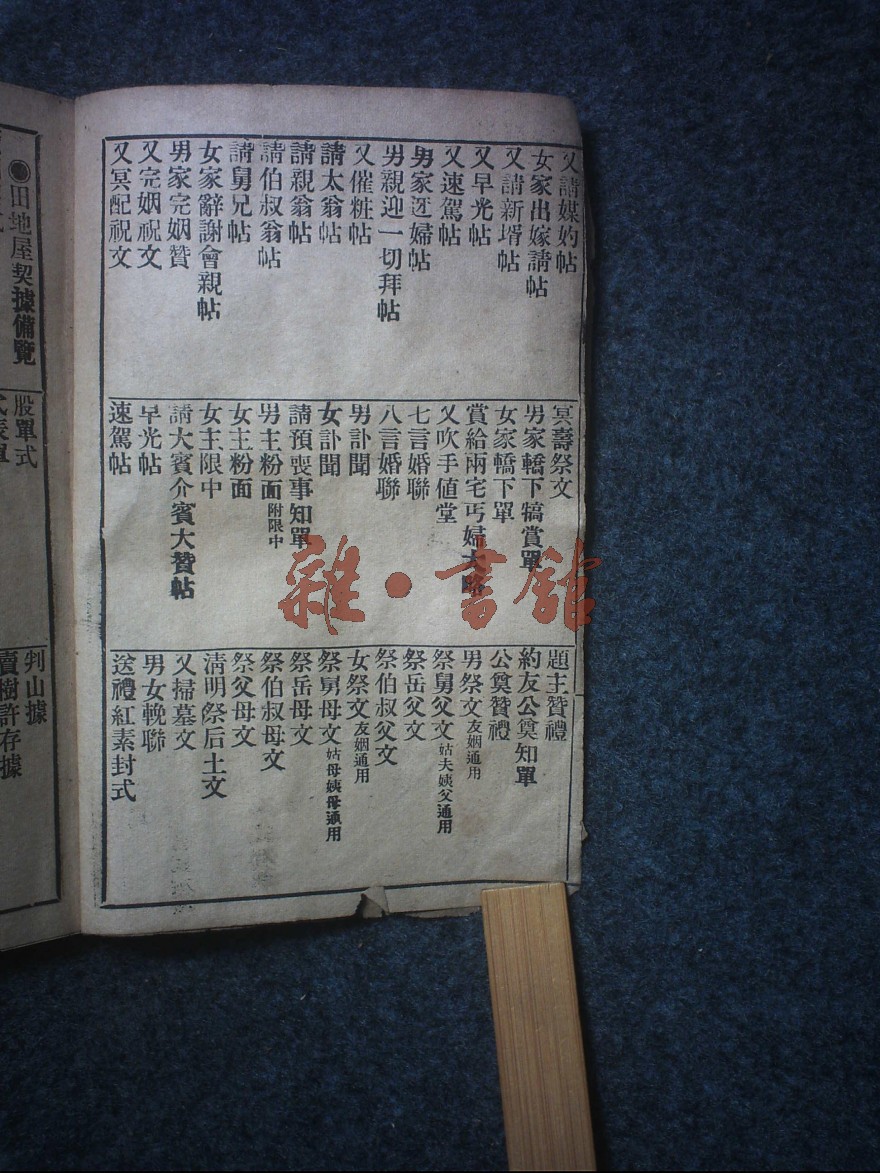 又請媒妁帖
女家出嫁請帖
又請新壻帖
又早光帖
又速駕帖
男家迓婦帖
男親迎一切拜帖
又催粧帖
請太翁帖
請親翁帖
請伯叔翁帖
請舅兄帖
女家辭謝會親帖
男家完姻贊
又完姻祝文
又冥配祝文
冥壽祭文
男家轎下犒賞單
女家轎下單
賞給兩宅丐婦大略
又吹手値堂
七言婚聯
八言婚聯
男訃聞
女訃聞
請預喪事知單
男主粉面附限中
女主粉面
女主限中
請大賓介賓大贊帖
早光帖
速駕帖
題主贊禮
約友公奠知單
公奠贊禮
男祭文友姻通用
祭舅父文姑夫姨父通用
祭岳父文
祭伯叔父文
女祭文友姻通用
祭舅母文姑母姨母通用
祭岳母文
祭伯叔母文
祭父母文
淸明祭后土文
又掃墓文
男女輓聯
送禮紅素封式
●田地屋契據備覽
股單式
判山據
賣樹許存據
雜·書館